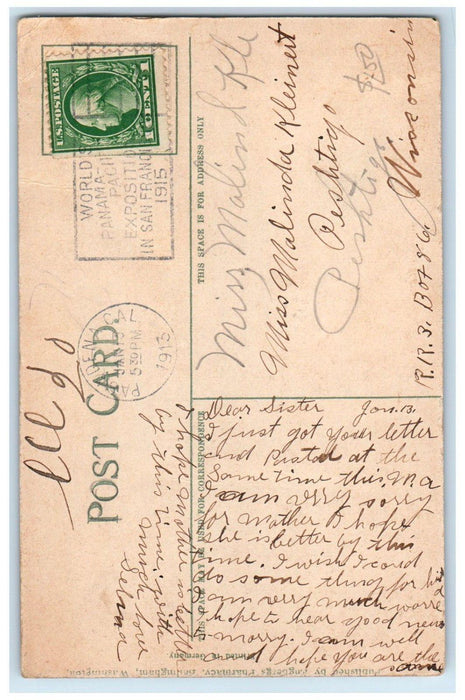 U.S. POSTAGE
1 CENT 1
WORLD'S
PANAMA-PACIFIC
EXPOSITION
IN SAN FRANCISCO
1915
CAL.
JAN 13
5 30 PM
1913
POST CARD.
THIS SPACE MAY BE USED FOR CORRESPONDENCE
THIS SPACE IS FOR ADDRESS ONLY
Miss Malind Kle
Miss Malinda Kleinert
Peshtigo
Peshtigo
R.R. 3. Box 86. Wisconsin
$4.50
Dear Sister Jan. 13.
I just got your letter
and Postal at the
Same time this. M. a
I am very sorry
for Mother I hope
she is better by this
time. I wish I could
do some thing for
I am very much worre
hope to hear good news
morry. I am well
and hope you are the
same
I hope Mother is well
by this time. with
much love
Selma
Printed in Germany